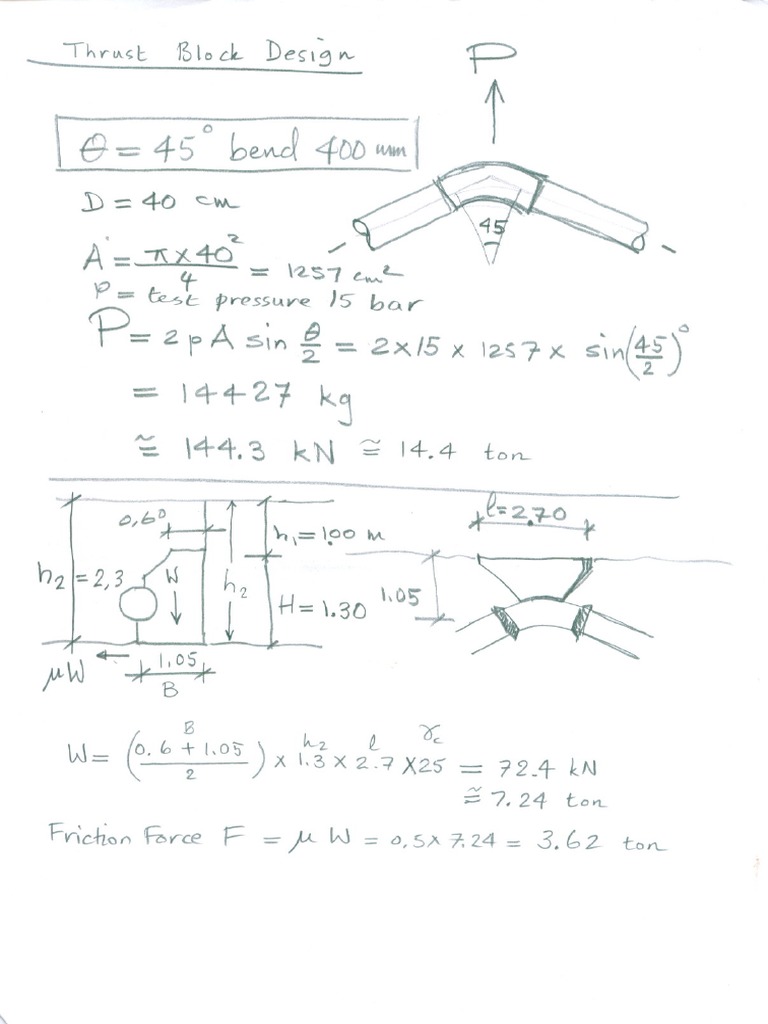 Thrust Block Design
P
θ = 45° bend 400 mm
D = 40 cm
45
A = π×40² / 4 = 1257 cm²
p = test pressure 15 bar
P = 2 p A sin θ/2 = 2×15 × 1257 × sin(45/2)°
= 14427 kg
≅ 144.3 kN ≅ 14.4 ton
0,60
h₁ = 1.00 m
l = 2.70
h₂ = 2,3
W
h₂
H = 1.30
1.05
μW
1.05
B
B
h₂ l γc
W = (0.6 + 1.05 / 2) × 1.3 × 2.7 × 25 = 72.4 kN
≅ 7.24 ton
Friction Force F = μ W = 0,5 × 7.24 = 3.62 ton